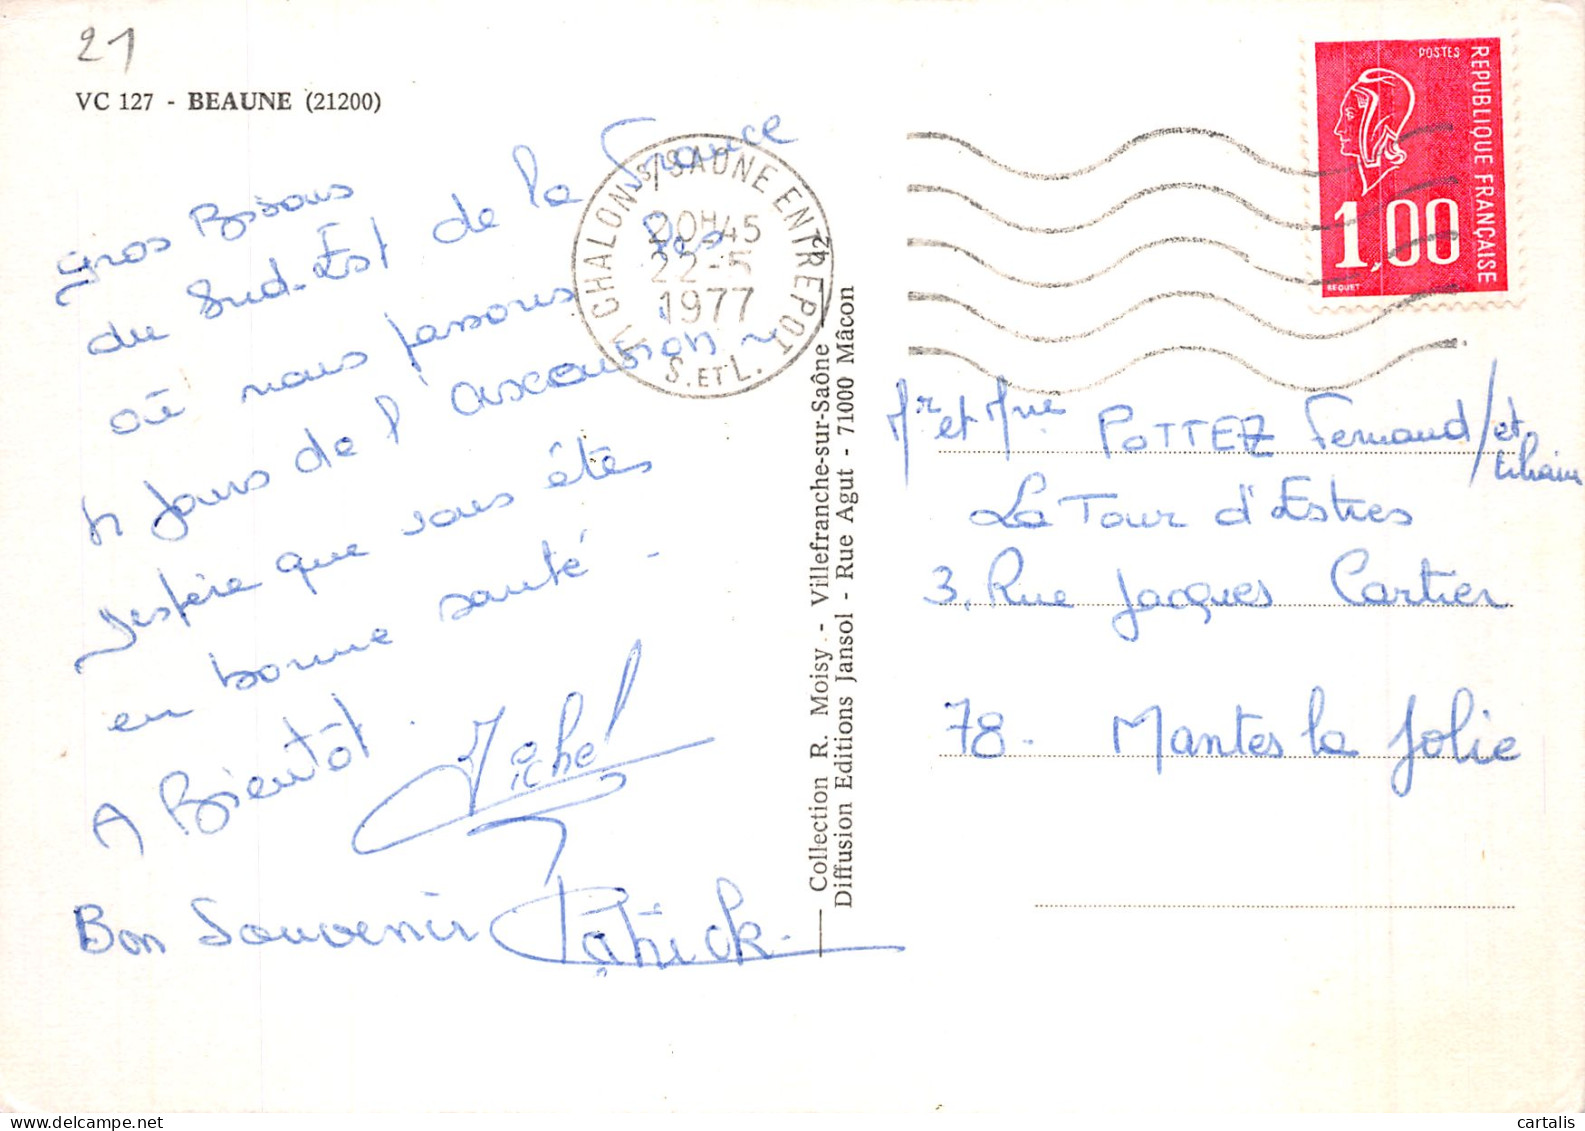 21
VC 127 - BEAUNE (21200)
gros Bisous
du Sud-Est de la France
où nous passons les
4 jours de l'ascension
J'espère que vous êtes
en bonne santé.
A Bientôt.
Michel
Bon Souvenir Patrick.
71 CHALON S/SAONE ENTREPOT
20H45
22-5
1977
S. ET L.
Collection R. Moisy - Villefranche-sur-Saône
Diffusion Editions Jansol - Rue Agut - 71000 Mâcon
POSTES
REPUBLIQUE FRANÇAISE
1,00
BEQUET
Mr et Mme POTTEZ Fernand / et
La Tour d'Estres
3, Rue Jacques Cartier
78 - Mantes la Jolie
cartalis